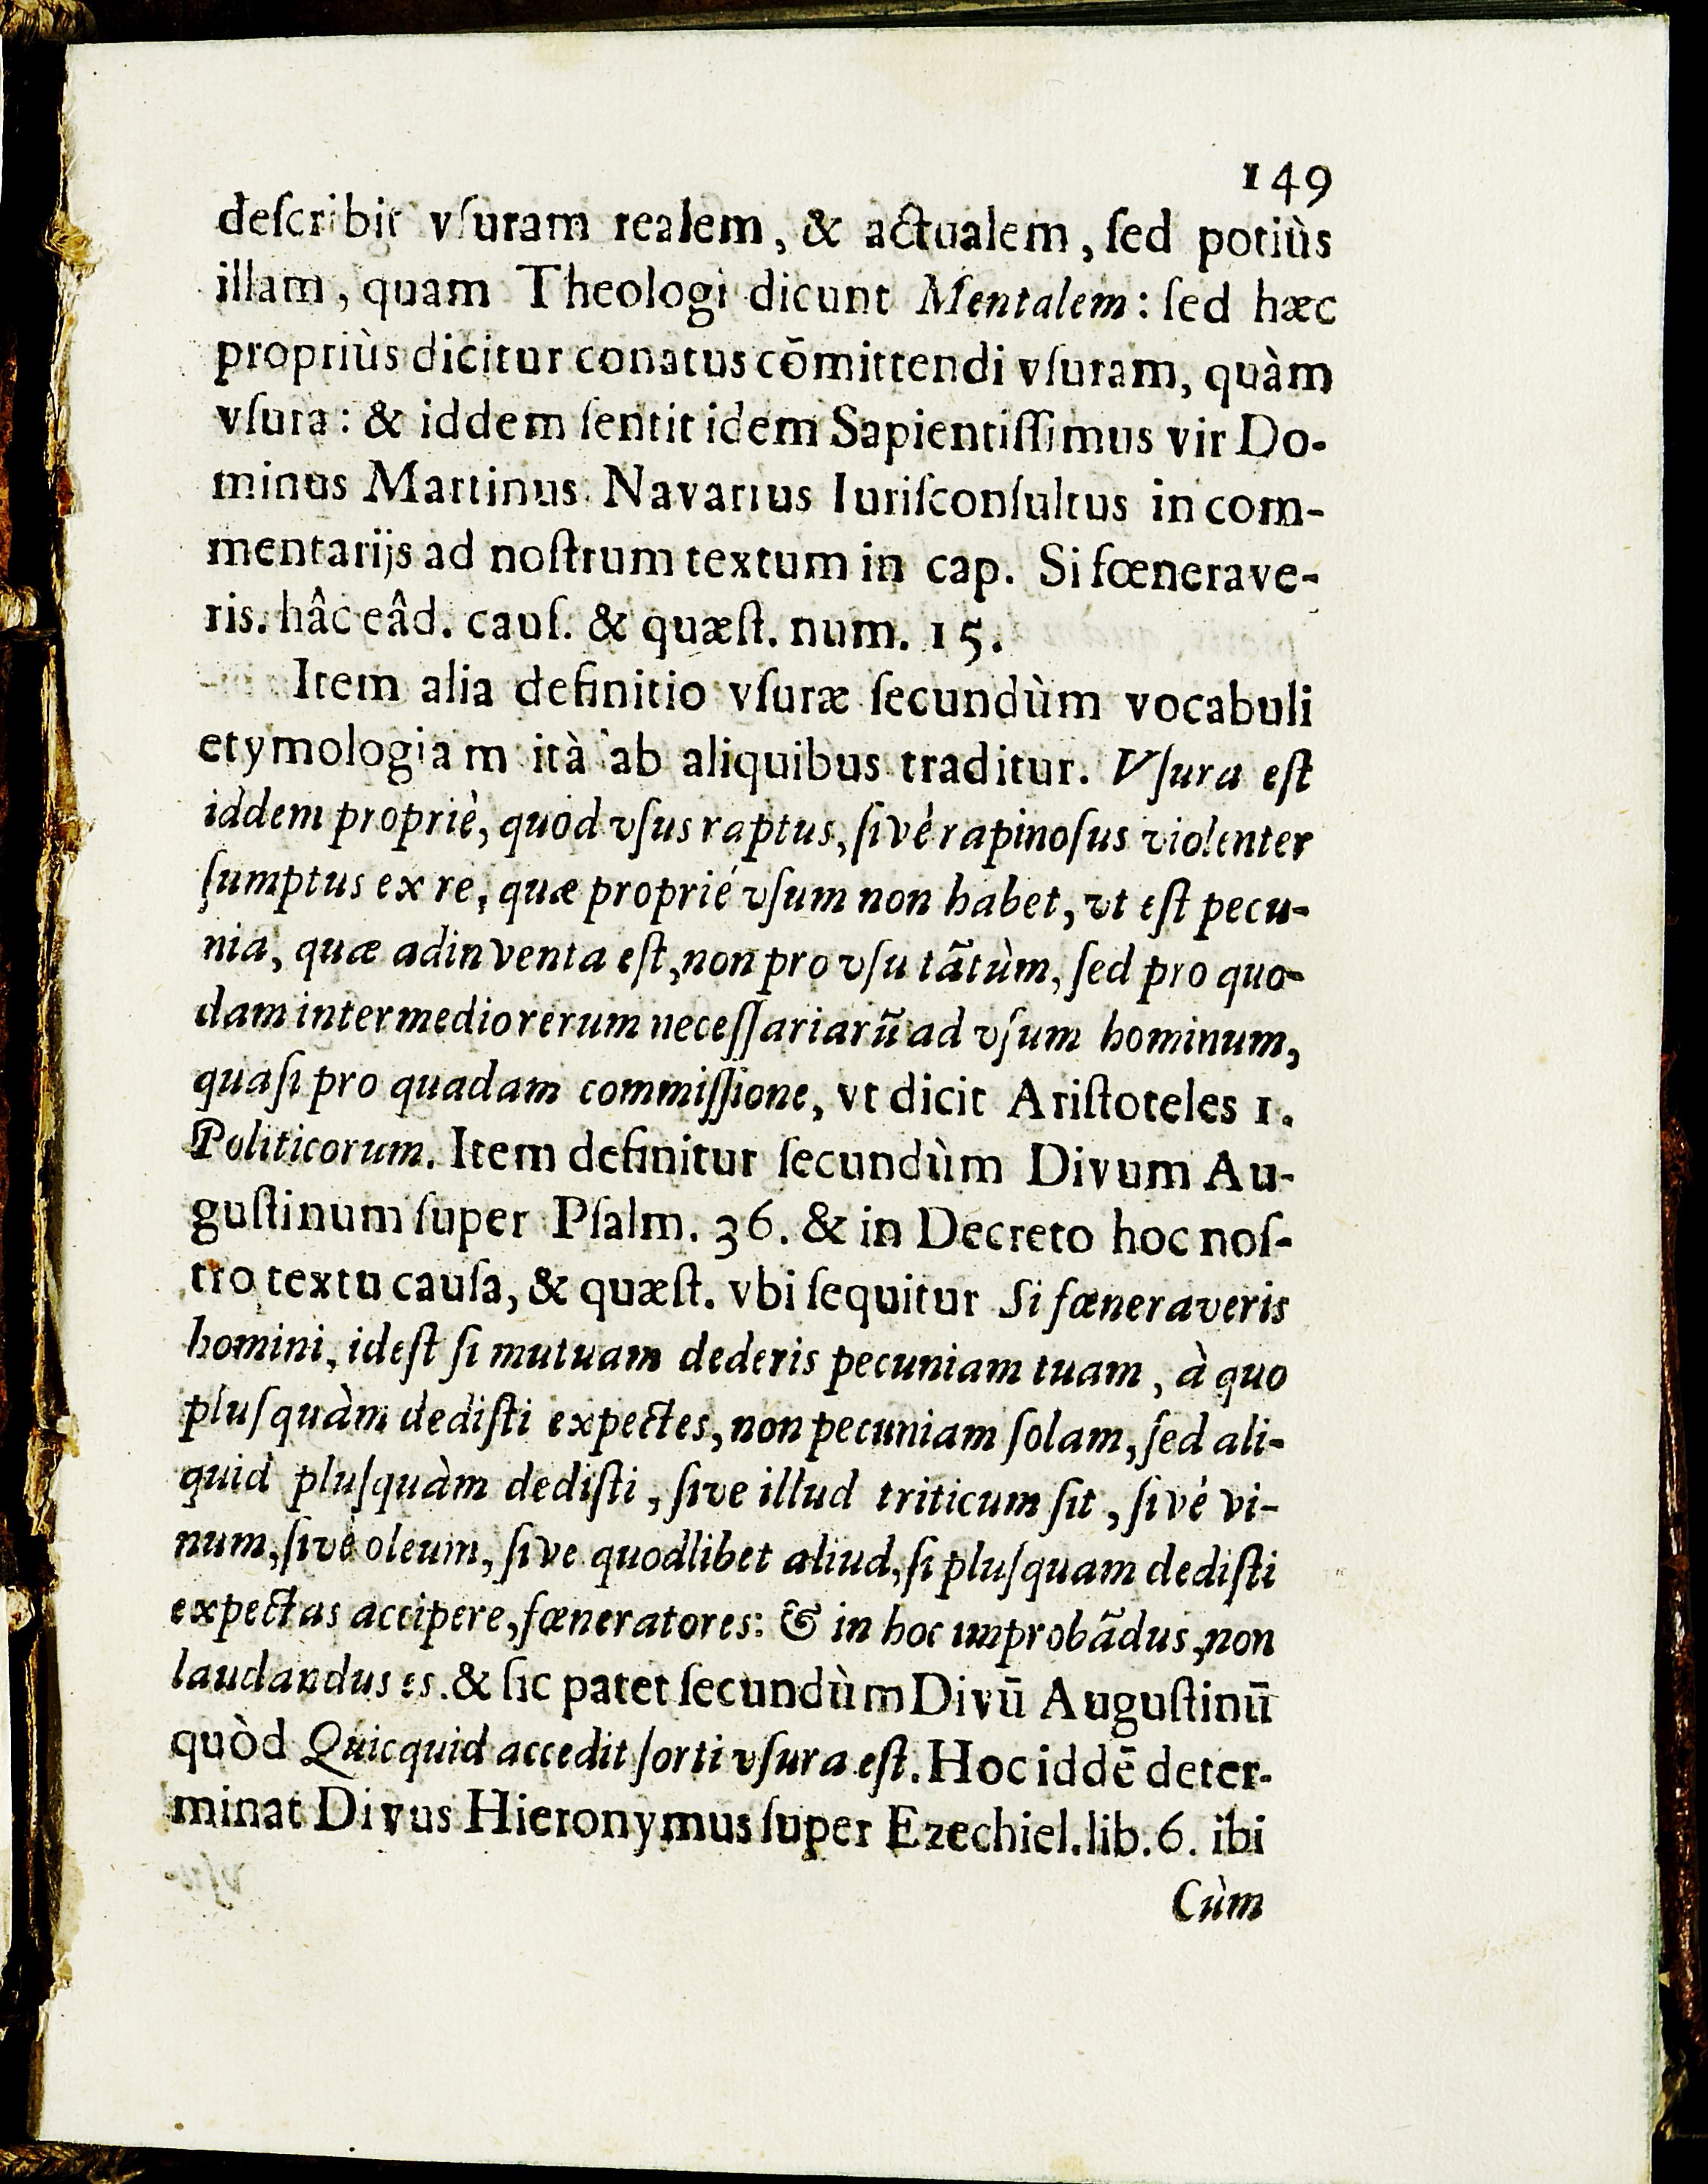 149
deſcribit vſuram realem, & actualem, ſed potiùs
illam, quam Theologi dicunt Mentalem: ſed hæc
propriùs dicitur conatus cōmittendi vſuram, quàm
vſura: & iddem ſentit idem Sapientiſſimus vir Do-
minus Martinus Navarrus Iuriſconſultus in com-
mentarijs ad noſtrum textum in cap. Si fœnerave-
ris. hâc eâd. cauſ. & quæſt. num. 15.
Item alia definitio vſuræ ſecundùm vocabuli
etymologiam ità ab aliquibus traditur. Vſura eſt
iddem propriè, quod vſus raptus, ſivé rapinoſus violenter
ſumptus ex re, quæ proprié vſum non habet, vt eſt pecu-
nia, quæ adinventa eſt, non pro vſu tãtùm, ſed pro quo-
dam intermedio rerum neceſſariarũ ad vſum hominum,
quaſi pro quadam commiſſione, vt dicit Ariſtoteles 1.
Politicorum. Item definitur ſecundùm Divum Au-
guſtinum ſuper Pſalm. 36. & in Decreto hoc noſ-
tro textu cauſa, & quæſt. vbi ſequitur Si fœneraveris
homini, ideſt ſi mutuam dederis pecuniam tuam, à quo
pluſquàm dediſti expectes, non pecuniam ſolam, ſed ali-
quid pluſquàm dediſti, ſive illud triticum ſit, ſivé vi-
num, ſivé oleum, ſive quodlibet aliud, ſi pluſquam dediſti
expectas accipere, fœneratores: & in hoc improbãdus, non
laudandus es. & ſic patet ſecundùm Divū Auguſtinū
quòd Quicquid accedit ſorti vſura eſt. Hoc iddē deter-
minat Divus Hieronymus ſuper Ezechiel. lib. 6. ibi
Cùm